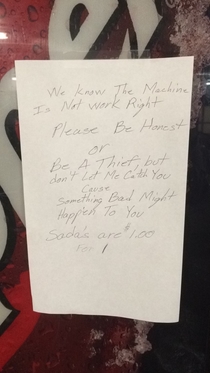 We know The Machine
Is Not work Right
Please Be Honest
or
Be A Thief, but
don't Let Me Catch You
Cause
Something Bad Might
Happen To You
Sada's are $1.00
For 1